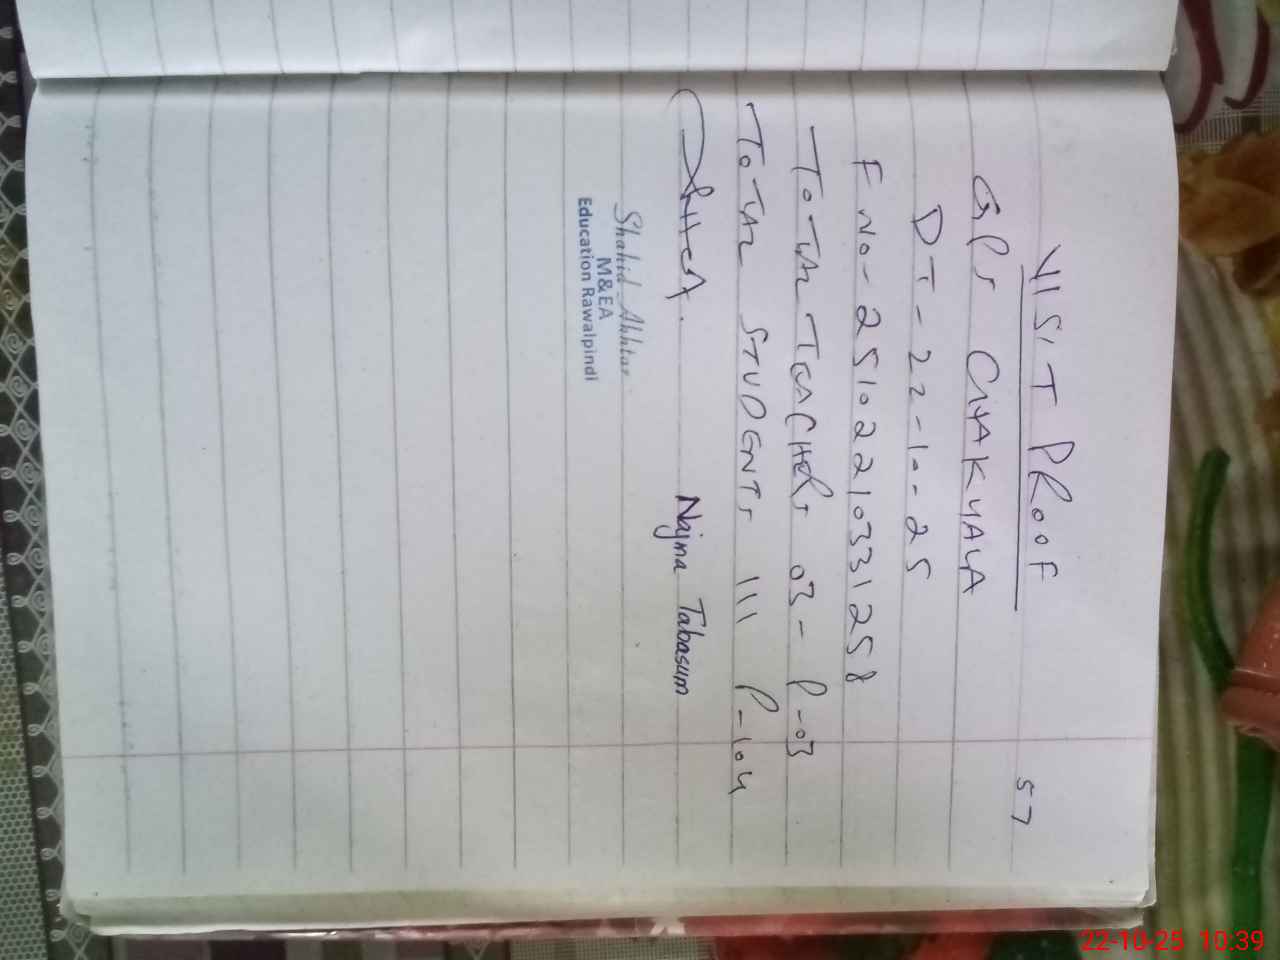 57
VISIT PROOF
GPS CHAKYALA
DT-22-10-25
F NO-25102210331258
TOTAL TEACHERS 03- P-03
TOTAL STUDENTS 111 P-104
Najma Tabasum
Shahid Akhtar
M&EA
Education Rawalpindi
22-10-25 10:39